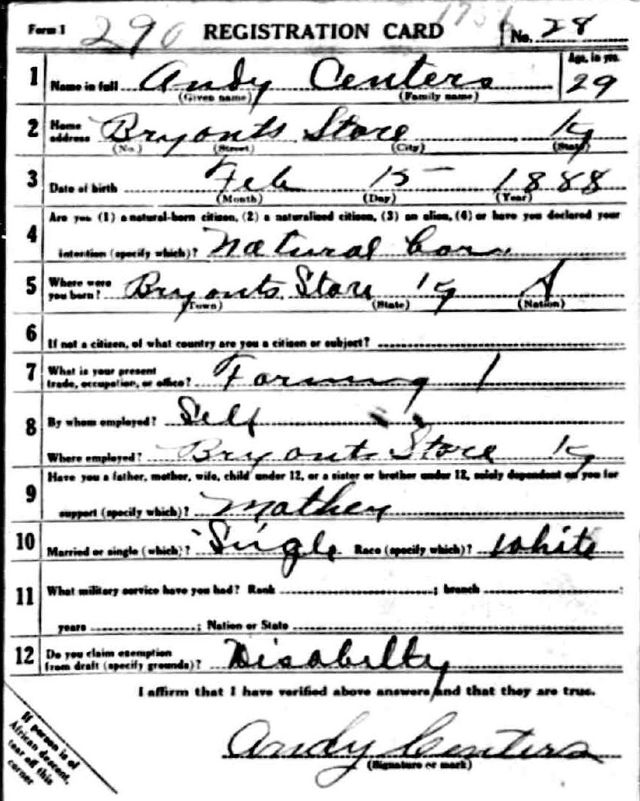 Form 1 290 REGISTRATION CARD No. 28
1 Name in full Andy Centers Age, in yrs. 29
(Given name) (Family name)
2 Home address Bryants Store Ky
(No.) (Street) (City) (State)
3 Date of birth Feb 15 1888
(Month) (Day) (Year)
Are you (1) a natural-born citizen, (2) a naturalized citizen, (3) an alien, (4) or have you declared your
4 intention (specify which)? Natural born
5 Where were you born? Bryants Store Ky A
(Town) (State) (Nation)
6 If not a citizen, of what country are you a citizen or subject?
7 What is your present trade, occupation, or office? Farming 1
8 By whom employed? Self
Where employed? Bryants Store Ky
Have you a father, mother, wife, child under 12, or a sister or brother under 12, solely dependent on you for
9 support (specify which)? Mother
10 Married or single (which)? Single Race (specify which)? White
11 What military service have you had? Rank ; branch
years ; Nation or State
12 Do you claim exemption from draft (specify grounds)? Disabilty
I affirm that I have verified above answers and that they are true.
Andy Centers
(Signature or mark)
If person is of
African descent,
tear off this
corner